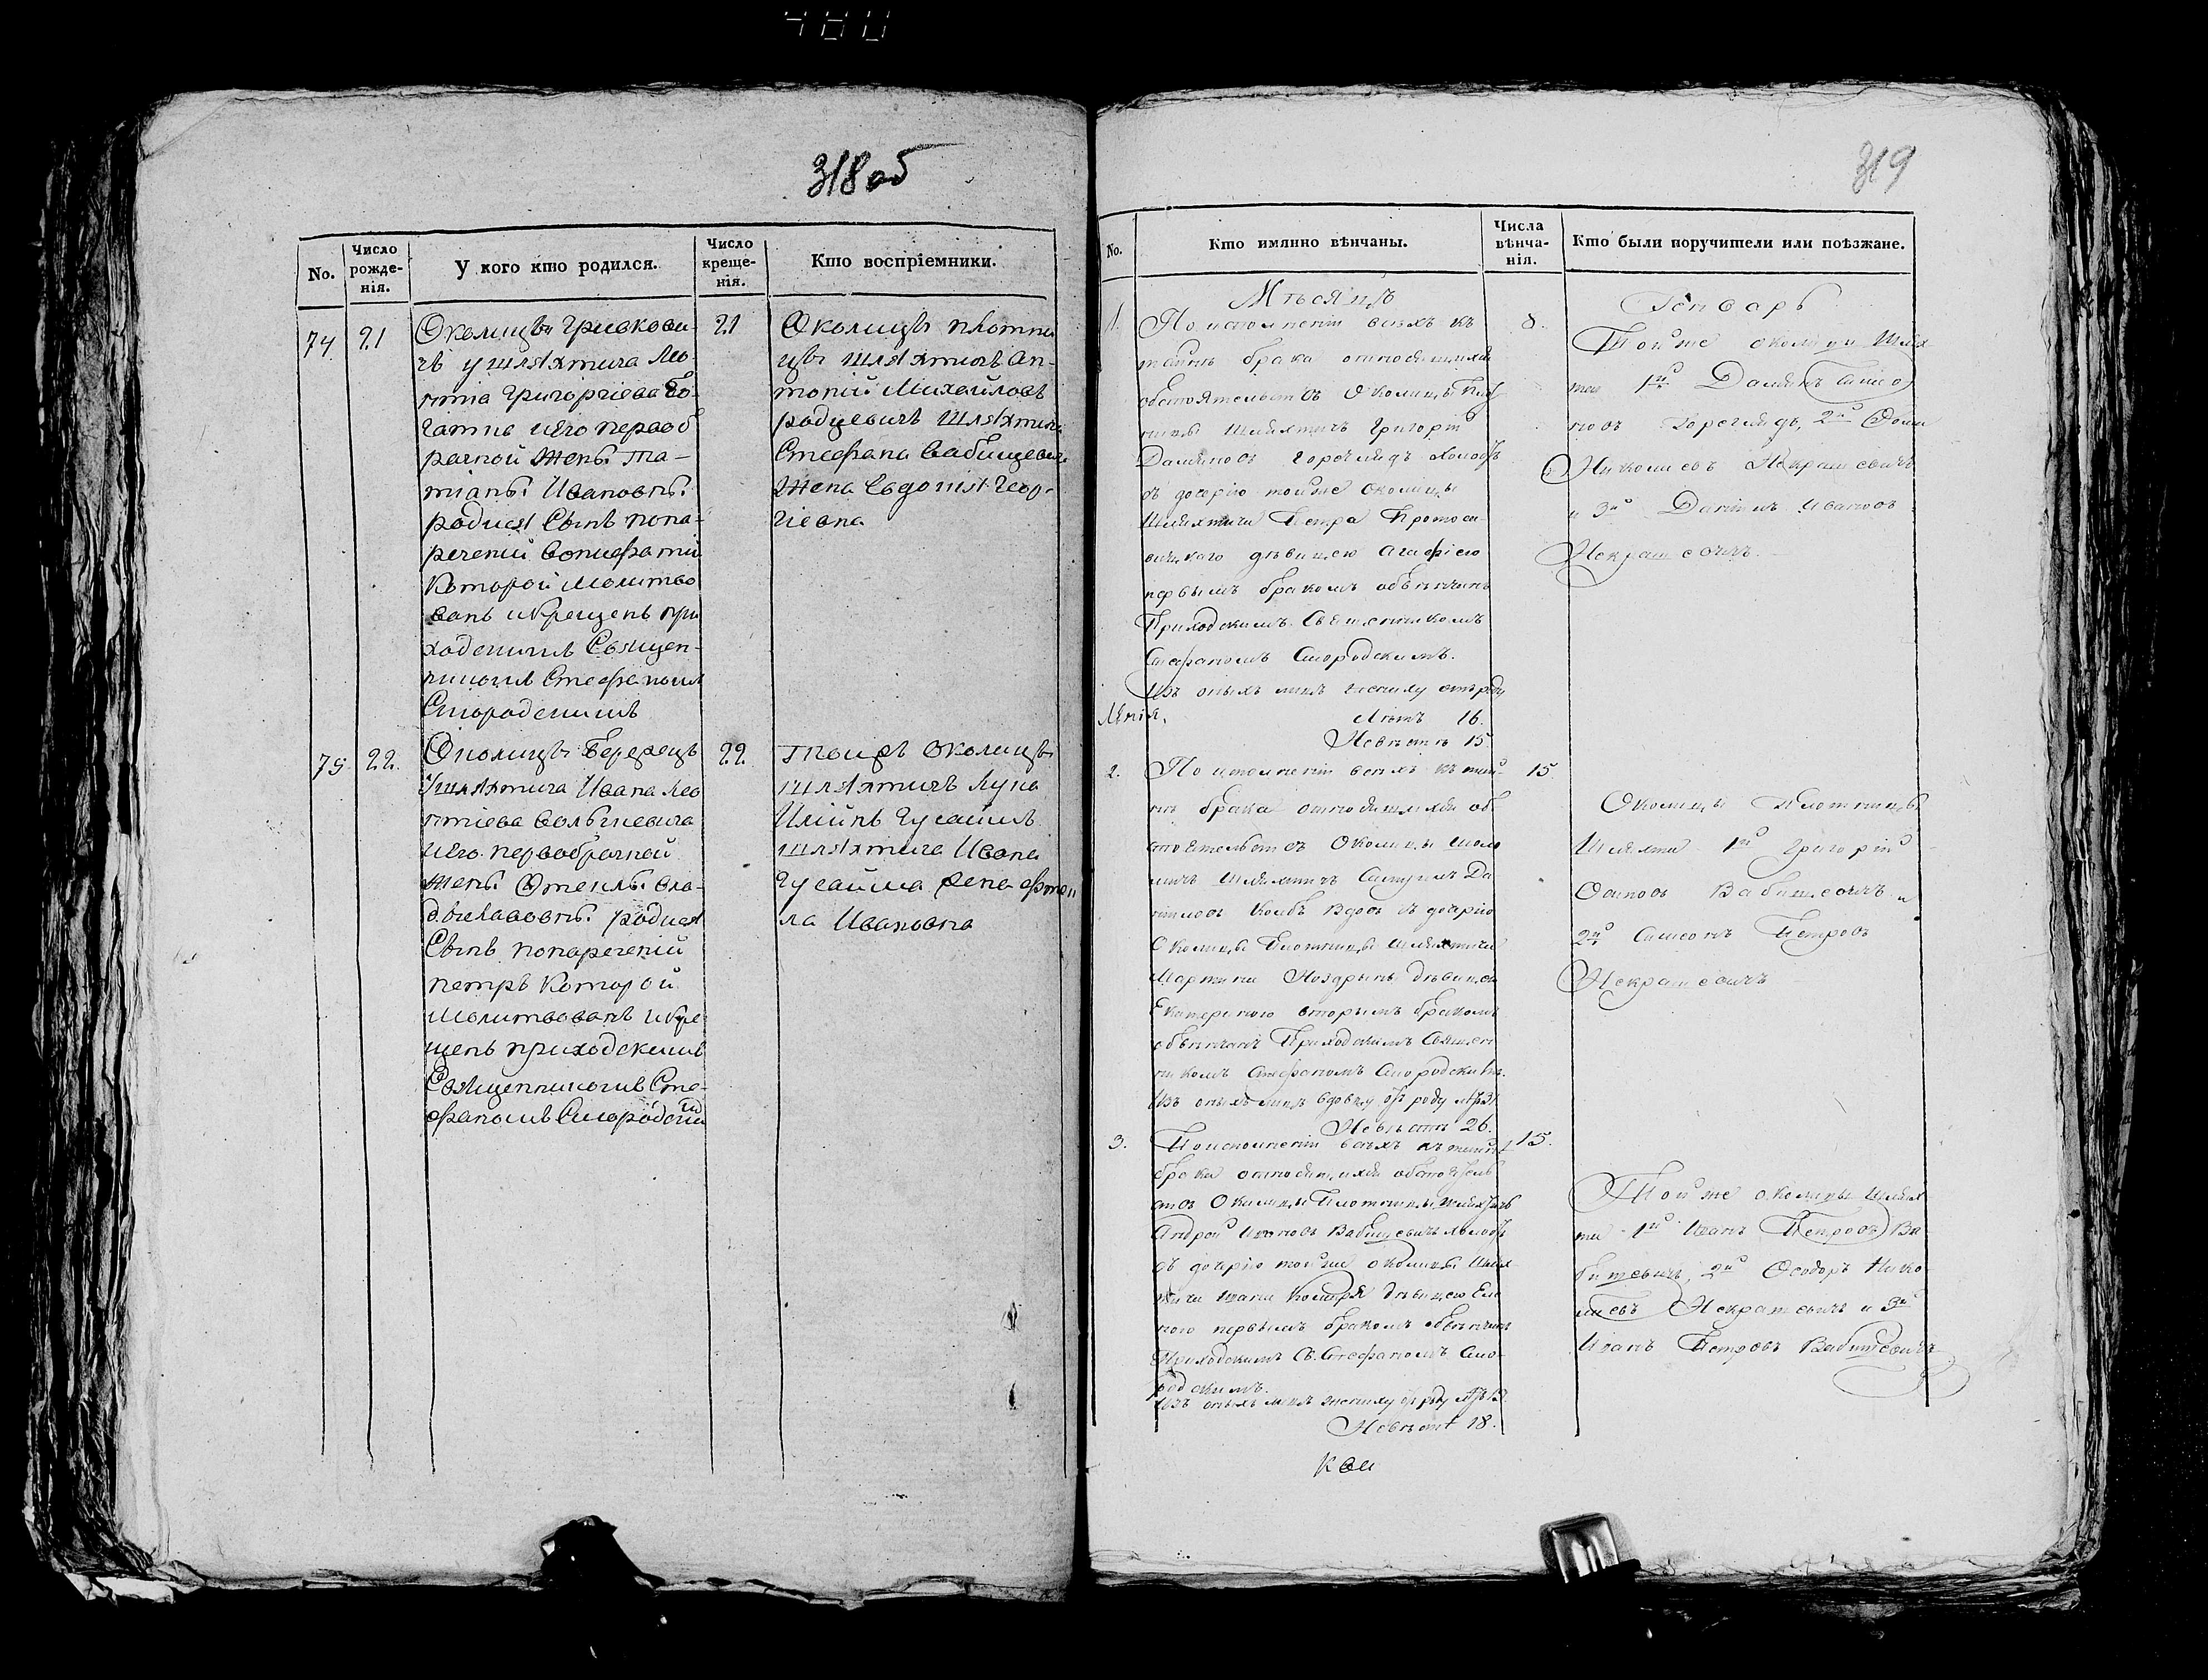 480
318 об
No.
Число рожденія.
У кого кто родился.
Число крещенія.
Кто воспріемники.
74
21
Околицы Гривкови-
чъ у шляхтича Лео-
нтіа Григоріева Бо-
гатпе иЪго первоб
рачной жены Та-
тіаны Ивановны
родися Сынъ пона-
реченій Вонифатій
Которой молитво
ванъ икрещенъ при
ходскимъ Священ-
никомъ Стефаномъ
Смородскимъ
21
Околицы плотни
цы шляхтичъ Ан-
тоній Михайловъ
родцевичъ шляхтича
Стефана бабицевича
Жена Евдокія Геор-
гіевна
75
22
Околицы Бережцъ
Ушляхтича Ивана Лео
нтіева
иЪго первобрачной
жены
родися
Сынъ понареченій
петръ Которой
Молитвованъ икре
щенъ приходскимъ
Священникомъ Сте-
фаномъ Смородским
22
тоеиже Околицы
шляхтичъ Лука
Илiинъ Гусаимъ
шляхтича Ивана
Гусаима
ла Ивановна
319
No.
Кто имянно вѣнчаны.
Числа вѣнчанія.
Кто были поручители или поѣзжане.
Мѣсяцъ
Генварь
1.
По исполненіи всѣхъ къ
тайнѣ брака относящихся
обстоятельствъ Околицы Плот
ницы Шляхтичъ Григорій
Даміановъ Горегляд холостъ
съ дочерію тойже Околицы
Шляхтича Петра Протаса
вицкаго дѣвицею Агафіею
первымъ бракомъ обвѣнчанъ
Приходскимъ Священникомъ
Стефаномъ Смородскимъ.
Изъ оныхъ лицъ жениху отъ роду
Лѣтъ 16.
Невѣстѣ 15.
8.
Тойже околицы Шлях
ти 1й Даміанъ
новъ Горегляд, 2й Фома
Николаевъ Некрашевичъ
и 3й Даніилъ Ивановъ
Некрашевичъ.
2.
По исполненіи всѣхъ къ тай-
нѣ брака относящихся об
стоятельствъ Околицы
шляхтичъ Самуилъ Да
ниловъ Колбъ вдовъ съ дочерію
Околицы Плотницы шляхтича
Мартина Ноздрынъ дѣвицею
Екатериною вторымъ бракомъ
обвѣнчанъ Приходскимъ Священ
никомъ Стефаномъ Смородскимъ.
Изъ оныхъ лицъ вдовцу отъ роду лѣтъ 31
Невѣстѣ 26.
15
Околицы Плотницы
Шляхти 1й Григорій
Осиповъ Бабицевичъ и
2й Симеонъ Петровъ
Некрашевичъ
3.
По исполненіи всѣхъ къ тайнѣ
брака относящихся обстоятель
ствъ Околицы Плотницы шляхтичъ
Андрей Ивановъ Бабицевичъ холостъ
съ дочерію тойже околицы Шлях
тича Ивана Комара дѣвицею Еле
ною первымъ бракомъ обвѣнчанъ
Приходскимъ Св. Стефаномъ Смо-
родскимъ.
Изъ оныхъ лицъ жениху отъ роду лѣтъ
Невѣстѣ 18.
15.
Тойже околицы Шлях
ти 1й Иванъ Петровъ Ба
бицевичъ, 2й Ѳеодоръ Нико
лаевъ Некрашевичъ и 3й
Иванъ Петровъ Бабицевичъ